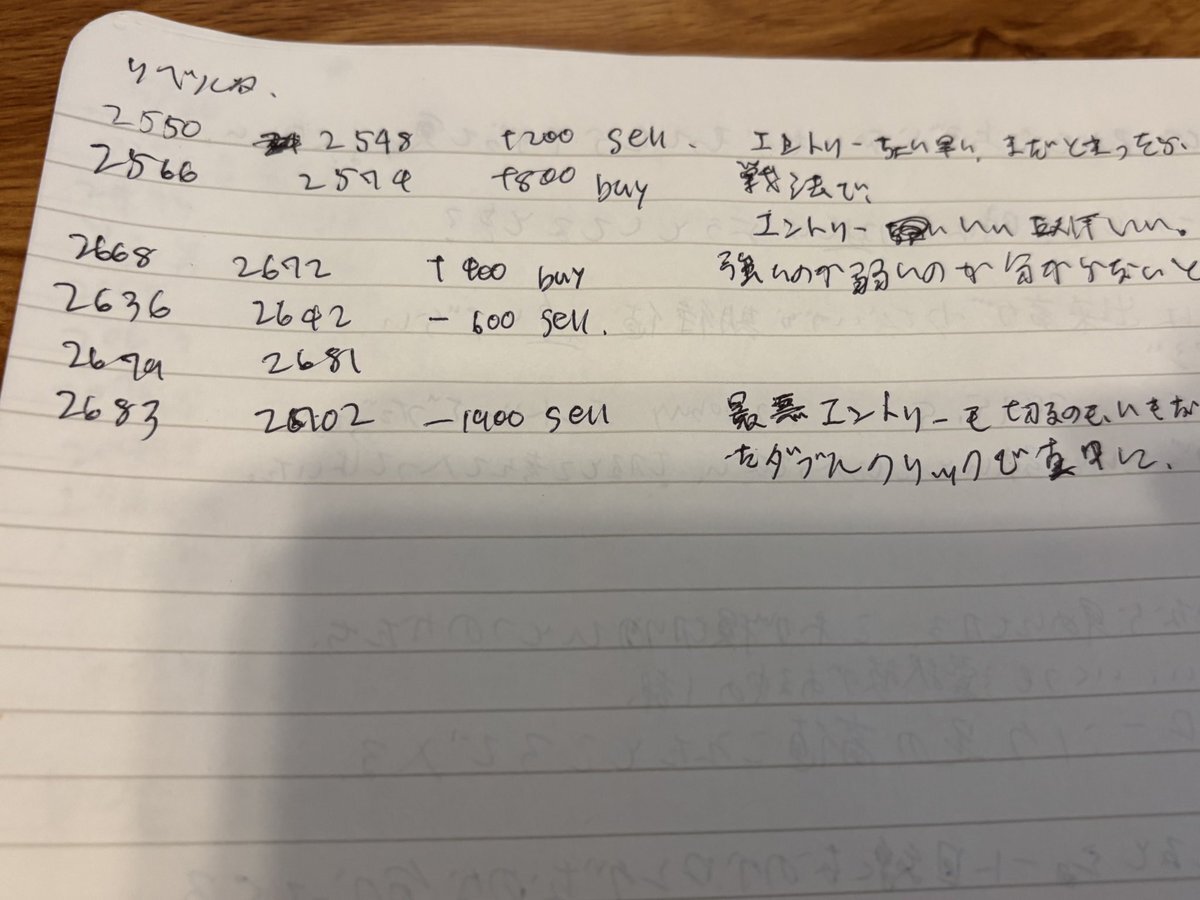 リベルタ、
2550 2548 +200 sell. エントリーちょい早い、まだ
2566 2574 +800 buy 戦法で、
エントリー いい
2668 2672 +400 buy 強いのか弱いのか分からないと
2636 2642 -600 sell.
2679 2681
2683 2702 -1900 sell 最悪エントリーも切るのも、いきな
たダブルクリックで